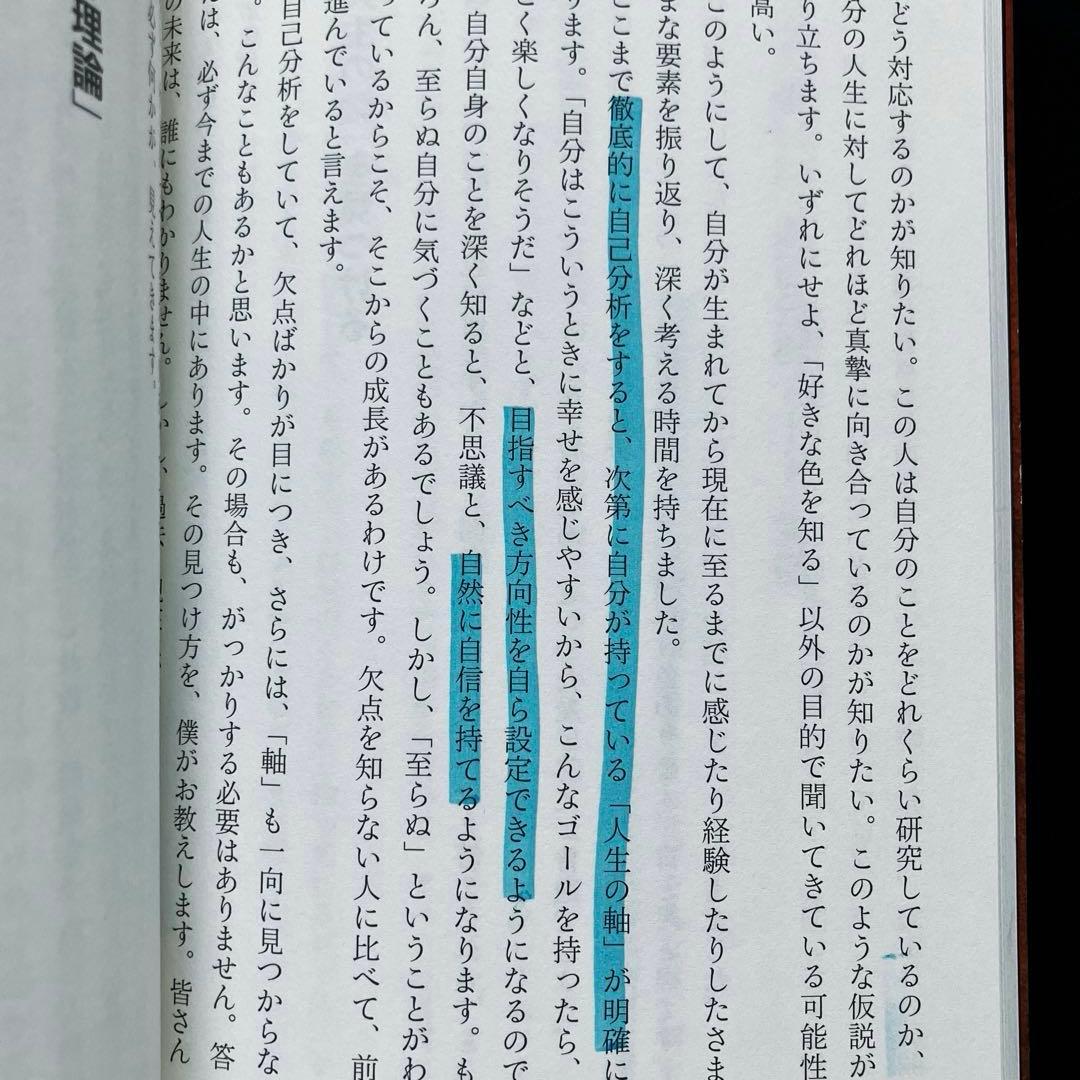 どう対応するのかが知りたい。この人は自分のことをどれくらい研究しているのか、
分の人生に対してどれほど真摯に向き合っているのかが知りたい。このような仮説が
り立ちます。いずれにせよ、「好きな色を知る」以外の目的で聞いてきている可能性
高い。
このようにして、自分が生まれてから現在に至るまでに感じたり経験したりしたさま
まな要素を振り返り、深く考える時間を持ちました。
ここまで徹底的に自己分析をすると、次第に自分が持っている「人生の軸」が明確に
ります。「自分はこういうときに幸せを感じやすいから、こんなゴールを持ったら、
ごく楽しくなりそうだ」などと、目指すべき方向性を自ら設定できるようになるので
自分自身のことを深く知ると、不思議と、自然に自信を持てるようになります。も
ろん、至らぬ自分に気づくこともあるでしょう。しかし、「至らぬ」ということがわ
っているからこそ、そこからの成長があるわけです。欠点を知らない人に比べて、前
進んでいると言えます。
自己分析をしていて、欠点ばかりが目につき、さらには、「軸」も一向に見つからな
。こんなこともあるかと思います。その場合も、がっかりする必要はありません。答
えは、必ず今までの人生の中にあります。その見つけ方を、僕がお教えします。皆さん
の未来は、誰にもわかりません。
理論」